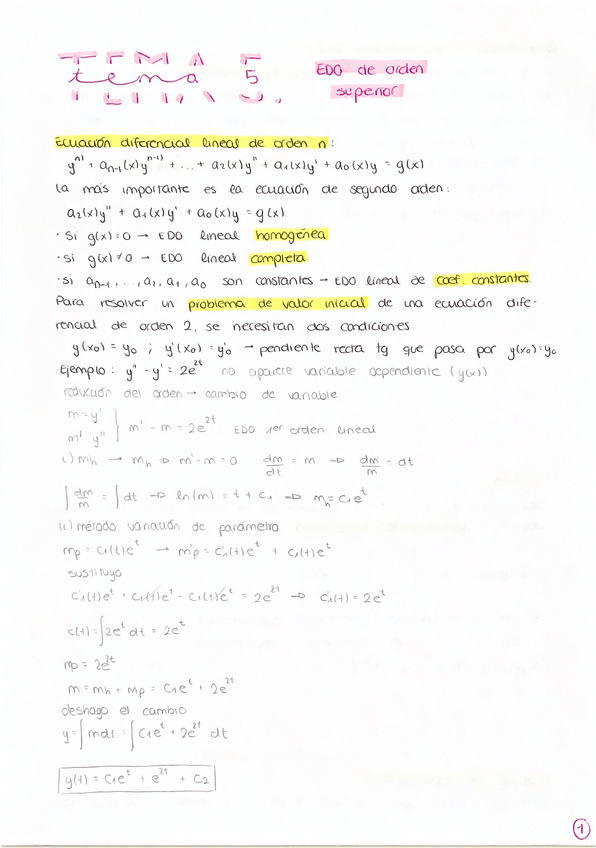 tema 5
EDO de orden
superior
Ecuación diferencial lineal de orden n:
yⁿ⁾ + aₙ₋₁(x)yⁿ⁻¹⁾ + ... + a₂(x)y'' + a₁(x)y' + a₀(x)y = g(x)
La más importante es la ecuación de segundo orden:
a₂(x)y'' + a₁(x)y' + a₀(x)y = g(x)
· Si g(x)=0 → EDO lineal homogénea
· si g(x)≠0 → EDO lineal completa
· si aₙ₋₁, ..., a₂, a₁, a₀ son constantes → EDO lineal de coef. constantes
Para resolver un problema de valor inicial de una ecuación dife-
rencial de orden 2, se necesitan dos condiciones
y(x₀) = y₀ ; y'(x₀) = y'₀ → pendiente recta tg que pasa por y(x₀)=y₀
Ejemplo: y'' - y' = 2e²ᵗ no aparece variable dependiente (y(x))
reducción del orden → cambio de variable
m = y'
m' y'' } m' - m = 2e²ᵗ EDO 1er orden lineal
i) mh → mh ⇒ m' - m = 0 dm/dt = m ⇒ dm/m = dt
∫ dm/m = ∫ dt ⇒ ln(m) = t + c₁ ⇒ mh = c₁eᵗ
ii) método variación de parámetro
mp = c₁(t)eᵗ → m'p = c'₁(t)eᵗ + c₁(t)eᵗ
sustituyo
c'₁(t)eᵗ + c₁(t)eᵗ - c₁(t)eᵗ = 2e²ᵗ ⇒ c'₁(t) = 2eᵗ
c(t) = ∫ 2eᵗ dt = 2eᵗ
mp = 2e²ᵗ
m = mh + mp = c₁eᵗ + 2e²ᵗ
deshago el cambio
y = ∫ mdt = ∫ c₁eᵗ + 2e²ᵗ dt
y(t) = c₁eᵗ + e²ᵗ + c₂
1